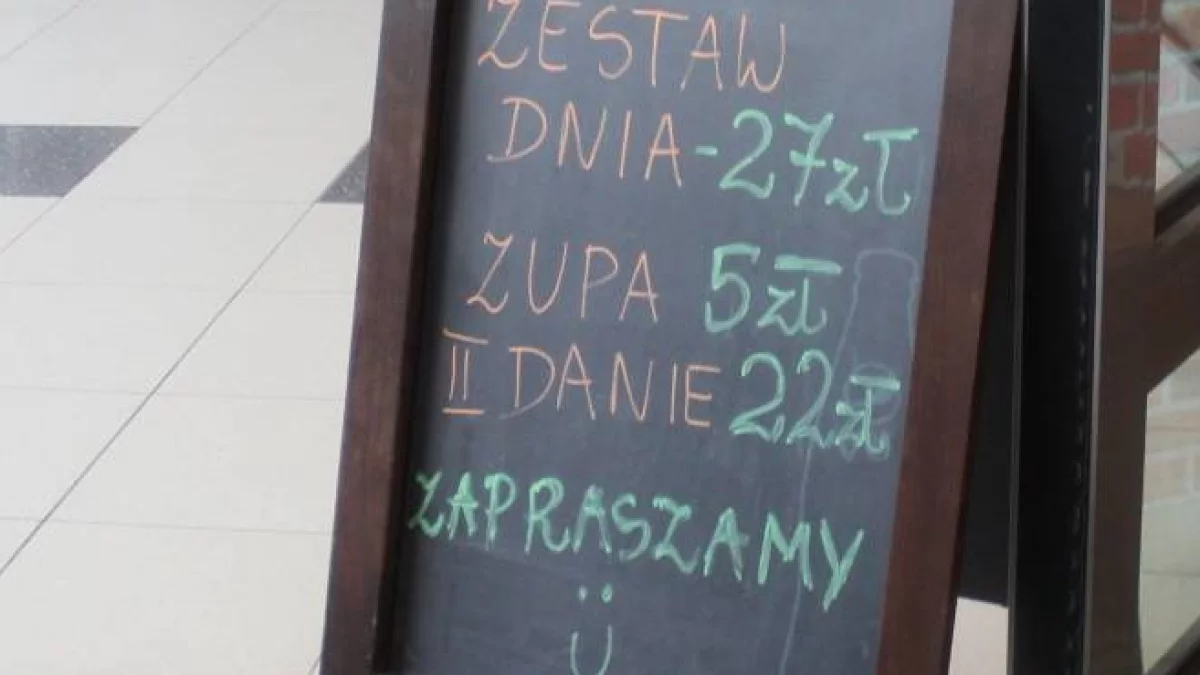 ZESTAW
DNIA - 27zł
ZUPA 5zł
II DANIE 22zł
ZAPRASZAMY